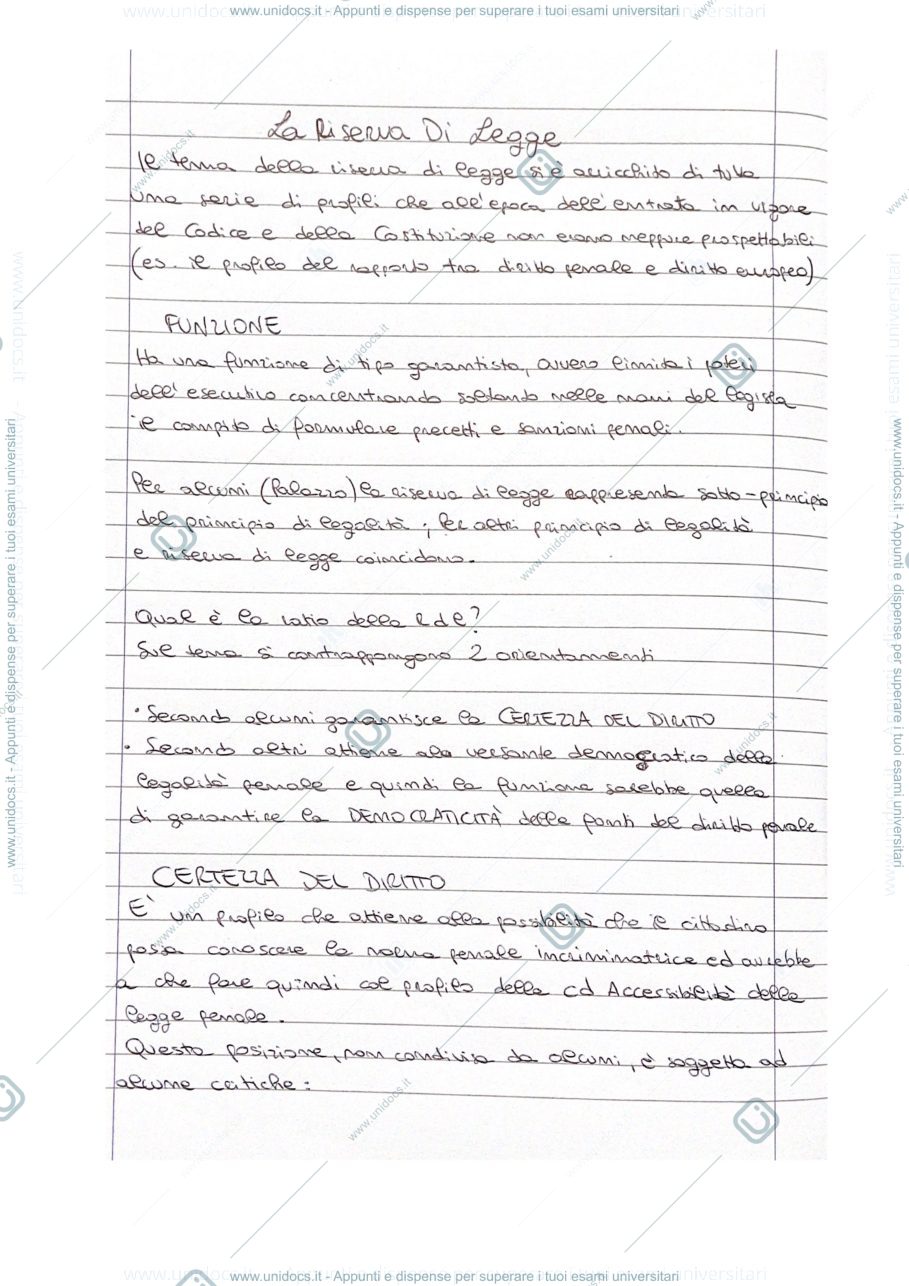 www.unidocs.it - Appunti e dispense per superare i tuoi esami universitari
La Riserva Di Legge
Il tema della riserva di legge si è arricchito di tutta
una serie di profili che all'epoca dell'entrata in vigore
del Codice e della Costituzione non erano neppure prospettabili
(es. il profilo del rapporto tra diritto penale e diritto europeo)
FUNZIONE
Ha una funzione di tipo garantista, ovvero limita i poteri
dell'esecutivo concentrando soltanto nelle mani del legista
il compito di formulare precetti e sanzioni penali.
Per alcuni (Palazzo) la riserva di legge rappresenta sotto-principio
del principio di legalità; Per altri principio di legalità
e riserva di legge coincidono.
Qual è la ratio della RdL?
Sul tema si contrappongono 2 orientamenti
• Secondo alcuni garantisce la CERTEZZA DEL DIRITTO
• Secondo altri attiene alla versante democratico della
legalità penale e quindi la funzione sarebbe quella
di garantire la DEMOCRATICITÀ delle fonti del diritto penale
CERTEZZA DEL DIRITTO
E' un profilo che attiene alla possibilità che il cittadino
possa conoscere la norma penale incriminatrice ed avrebbe
a che fare quindi col profilo della cd Accessibilità della
legge penale.
Questa posizione, non condivisa da alcuni, è soggetta ad
alcune critiche:
www.unidocs.it - Appunti e dispense per superare i tuoi esami universitari